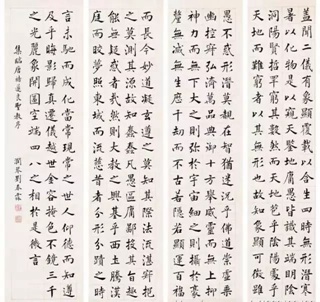 蓋聞二儀有像顯覆載以含生四時無形潛寒
暑以化物是以窺天鑒地庸愚皆識其端明陰
洞陽賢哲罕窮其數
天地而難窮者以其無形也故知象顯可徵雖
愚不惑形潛莫覩在智猶迷況乎佛道崇虛乘
幽控寂弘濟萬品典御十方舉威靈而無上抑
神力而無下大之則彌於宇宙細之則攝於毫
釐無滅無生歷千劫而不古若隱若顯運百福
而長今妙道凝玄遵之莫知其際法流湛寂挹
之莫測其源故知蠢蠢凡愚區區庸鄙投其旨趣
能無疑惑者哉然則大教之興基乎西土騰漢
庭而皎夢照東域而流慈昔者分形分跡之時
言未馳而成化當常現常之世人仰德而知遵
及乎晦影歸真遷儀越世金容掩色不鏡三千
之光麗象開圖空端四八之相於是微言
集臨唐褚遂良聖教序
潤琴劉春霖